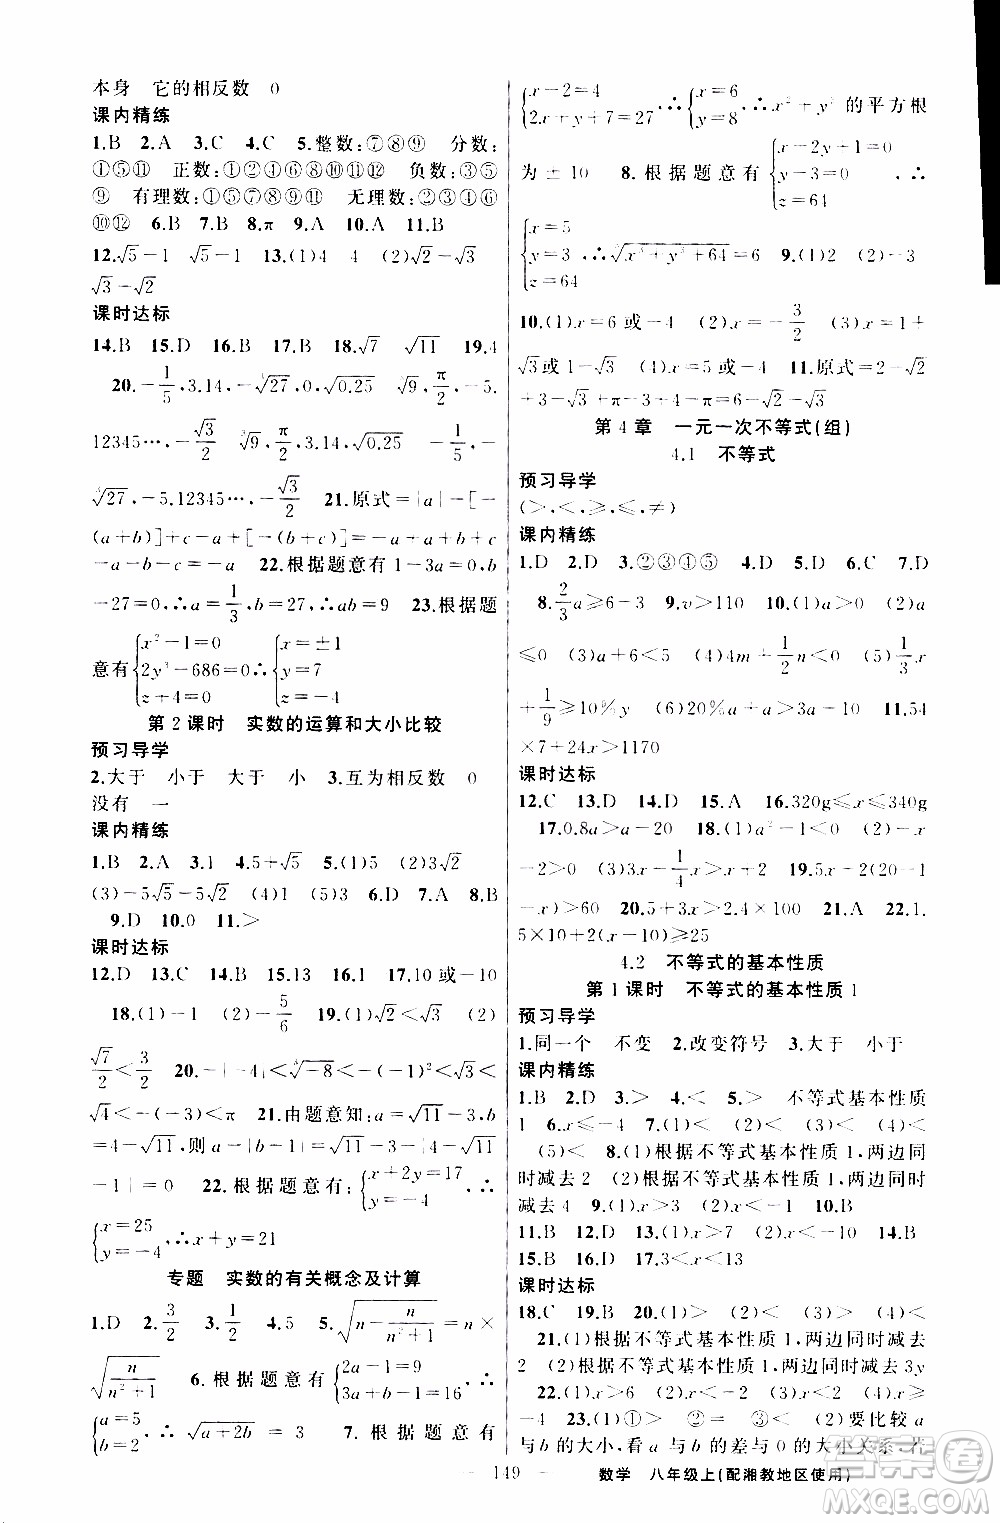 本身　它的相反数　0
课内精练
1.B　2.A　3.C　4.C　5.整数:⑦⑧⑨　分数:
①⑤⑪　正数:①②⑦⑧⑩⑪⑫　负数:③⑤
⑨　有理数:①⑤⑦⑧⑨⑪　无理数:②③④⑥
⑩⑫　6.B　7.B　8.π　9.A　10.A　11.B
12.√5－1　√5－1　13.(1)4　4　(2)√2－√3
√3－√2
课时达标
14.B　15.D　16.B　17.B　18.√7　√11　19.4
20.－1/5,3.14,－∛27,0,√0.25　∛9,π/2,－5.
12345…,－√3/2　∛9,π/2,3.14,√0.25　－1/5,－
∛27,－5.12345…,－√3/2　21.原式＝|a|－[－
(a＋b)]＋c－a＋[－(b＋c)]＝－a＋a＋b＋c
－a－b－c＝－a　22.根据题意有1－3a＝0,b
－27＝0,∴a＝1/3,b＝27,∴ab＝9　23.根据题
意有{x²－1＝0 2y³－686＝0 z＋4＝0∴{x＝±1 y＝7 z＝－4
第2课时　实数的运算和大小比较
预习导学
2.大于　小于　大于　小　3.互为相反数　0
没有　一
课内精练
1.B　2.A　3.1　4.5＋√5　5.(1)5　(2)3√2
(3)－5√5－5√2　(4)1　(5)3　6.D　7.A　8.B
9.D　10.0　11.＞
课时达标
12.D　13.C　14.B　15.13　16.1　17.10或－10
18.(1)－1　(2)－5/6　19.(1)√2＜√3　(2)
√7/2＜3/2　20.－|－4|＜∛－8＜－√2＜√3＜
√4＜π　21.由题意知:a＝√11－3,b
＝4－√11,则a－|b－1|＝√11－3－|4－√11
－1|＝0　22.根据题意有:{x＋2y＝17 y＝－4,∴
{x＝25 y＝－4,∴x＋y＝21
专题　实数的有关概念及计算
1.D　2.3/2　3.1/2　4.5　5.√(n－n/(n²＋1))＝n×
√(n/(n²＋1))　6.根据题意有{2a－1＝9 3a＋b－1＝16,∴
{a＝5 b＝2　∴√a＋2b＝3　7.根据题意有
{x－2＝4 2x＋y＋7＝27,∴{x＝6 y＝8,∴x²＋y²的平方根
为±10　8.根据题意有{x－2y＋1＝0 y－3＝0 z＝64,∴
{x＝5 y＝3 z＝64,∴∛x³＋y³＋64＝6　9.(1)2　(2)－3
10.(1)x＝6或－4　(2)x＝－3/2　(3)x＝1＋
√3或1－√3　(4)x＝5或－4　11.原式＝2－√2
＋3－√3＋π－3＋4－π＝6－√2－√3
第4章　一元一次不等式(组)
4.1　不等式
预习导学
(＞,＜,≥,≤,≠)
课内精练
1.D　2.D　3.②③④⑤　4.B　5.D　6.C　7.D
8.2/3a≥6－3　9.v＞110　10.(1)a＞0　(2)a
≤0　(3)a＋6＞5　(4)4m＋1/2n＜0　(5)1/3x
＋1/9≥10%y　(6)20%a＋a＞3a　11.54
×7＋24x＞1170
课时达标
12.C　13.D　14.D　15.A　16.320g≤x≤340g
17.0.8a＞a－20　18.(1)a²－1＜0　(2)－x
－2＞0　(3)4x－1/4＞x＋2　19.5x－2(20－1
－x)＞60　20.5x＞2.4×12　21.A　22.1.
5×10＋2(x－10)≥25
4.2　不等式的基本性质
第1课时　不等式的基本性质1
预习导学
1.同一个　不变　2.改变符号　3.大于　小于
课内精练
1.B　2.D　3.＞　4.＜　5.＞　不等式基本性质
1　6.x≤－4　7.(1)＜　(2)＜　(3)＜　(4)＜
(5)＜　8.(1)根据不等式基本性质1,两边同
时减去3　(2)根据不等式基本性质1,两边同时
减去4　9.(1)x＞7　(2)x＜－1　10.B
11.B　12.D　13.(1)x＞7　(2)x＜－4　14.B
15.B　16.D　17.3＜x＜13
课时达标
18.C　19.B　20.(1)＞　(2)＜　(3)＞　(4)＜
21.(1)根据不等式基本性质1,两边同时减去
2　(2)根据不等式基本性质1,两边同时减去3y
22.(1)x＞6　(2)y＞－2　(3)x＞2　(4)x≥
－4　23.(1)①＞　②＝　③＜　(2)要比较a
与b的大小,看a与b的差与0的大小关系,若
149
数学　八年级上(配湘教地区使用)
答案圈
MXQE.COM